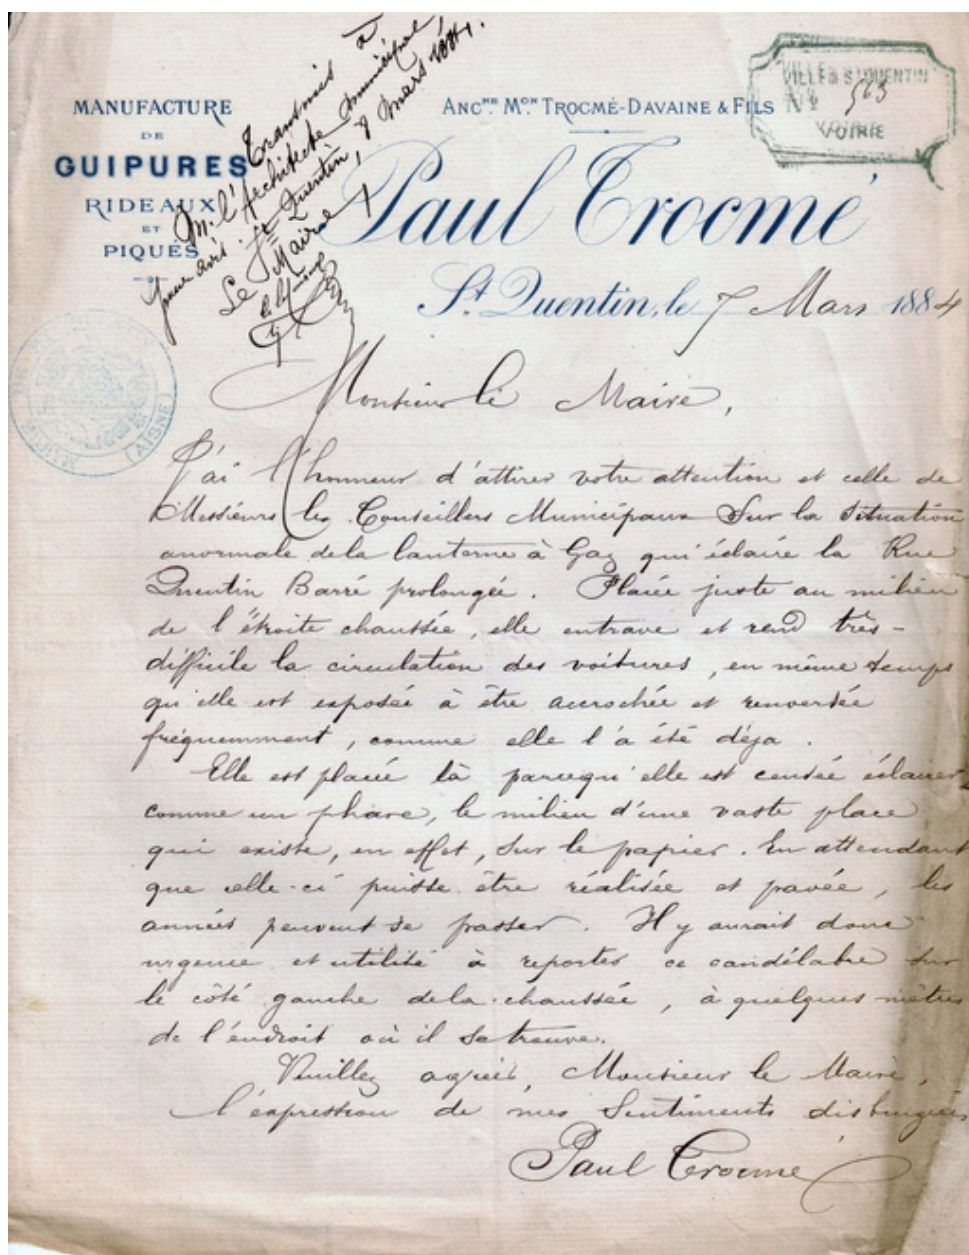 MANUFACTURE
DE
GUIPURES
RIDEAUX
ET
PIQUÉS
Transmis à
M. l'Architecte Municipal
pour avis. St Quentin, 8 Mars 1884.
Le Maire
ANCNE MON TROCMÉ-DAVAINE & FILS
VILLE DE ST QUENTIN
No 563
VOIRIE
Paul Trocmé
St Quentin, le 7 Mars 1884
(AISNE)
Monsieur le Maire,
J'ai l'honneur d'attirer votre attention et celle de
Messieurs les Conseillers Municipaux sur la situation
anormale de la lanterne à Gaz qui éclaire la Rue
Quentin Barré prolongée. Placée juste au milieu
de l'étroite chaussée, elle entrave et rend très-
difficile la circulation des voitures, en même temps
qu'elle est exposée à être accrochée et renversée
fréquemment, comme elle l'a été déja.
Elle est placée là parcequ'elle est censée éclairer,
comme un phare, le milieu d'une vaste place
qui existe, en effet, sur le papier. En attendant
que celle-ci puisse être réalisée et pavée, les
années peuvent se passer. Il y aurait donc
urgence et utilité à reporter ce candélabre sur
le côté gauche de la chaussée, à quelques mètres
de l'endroit où il se trouve.
Veuillez agréer, Monsieur le Maire,
l'expression de mes Sentiments distingués,
Paul Trocmé